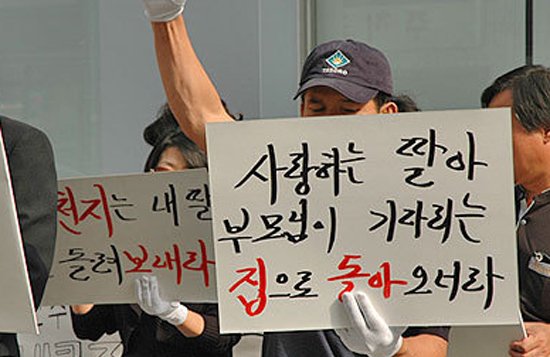 사랑하는 딸아
부모님이 기다리는
집으로 돌아 오너라
는 내 딸
돌려 보내라